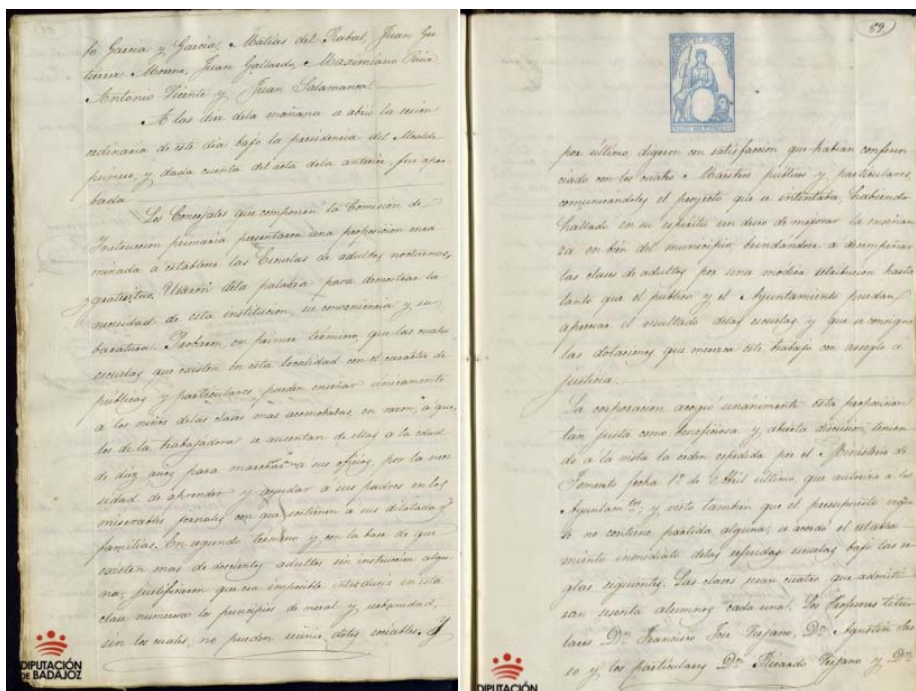 to Garcia y Garcia, Matias del Rabal, Juan Gu
tierrez Moreno, Juan Gallardo, Maximiano
Antonio Vicente y Juan Salamanca
A las diez dela mañana se abrió la sesion
ordinaria de este dia bajo la presidencia del Alcalde
primero, y dada cuenta del acta dela anterior fue apro-
bada
Los Concejales que componen la Comision de
Instruccion primaria presentaron una proposicion enca
minada a establecer las Escuelas de adultos nocturnas,
y gratuitas. Usaron dela palabra para demostrar la
necesidad de esta institucion, su conveniencia y su
baratura. Probaron, en primer término, que las cuatro
escuelas que existen en esta localidad con el caracter de
publicas y particulares, pueden enseñar únicamente
a los niños delas clases mas acomodadas, en razon, á que
los de la trabajadora se ausentan de ellas a la edad
de diez años para marchar a sus oficios, por la nece
sidad de aprender y ayudar a sus padres en los
miserables jornales con que sostienen a sus dilatadas
familias. En segundo termino y con la base de que
existen mas de doscientos adultos sin instruccion algu-
na, justificaron que era imposible introducir en esta
clase numerosa los principios de moral y urbanidad,
sin los cuales, no pueden reunir dotes sociables. Y
DIPUTACIÓN
DE BADAJOZ
59
por ultimo, digeron con satisfaccion que habian conferen-
ciado con los cuatro Maestros publicos y particulares,
comunicandoles el proyecto que se intentaba, habiendo
hallado en su espiritu un deseo de mejorar la enseñan
za en bien del municipio, brindandose a desempeñar
las clases de adultos por una modica retribucion hasta
tanto que el publico y el Ayuntamiento puedan
apreciar el resultado delas escuelas y que se consigne
las dotaciones que merezca este trabajo con arreglo a
justicia.
La corporacion acogió unanimemente esta proposicion
tan justa como beneficiosa y, abierta discusion, tenien
do a la vista la orden espedida por el Ministerio de
Fomento fecha 1º de Abril ultimo, que autoriza a los
Ayuntamtos; y visto tambien que el presupuesto vigen
te no contiene partida alguna; se acordó el estableci
miento inmediato delas referidas escuelas bajo las re-
glas siguientes. Las clases seran cuatro que admiti-
ran sesenta alumnos cada una. Los Profesores titu
lares Dn Francisco José Trejano, Dn Agustin
so y los particulares Dn Ricardo Trejano y Dn
DIPUTACIÓN